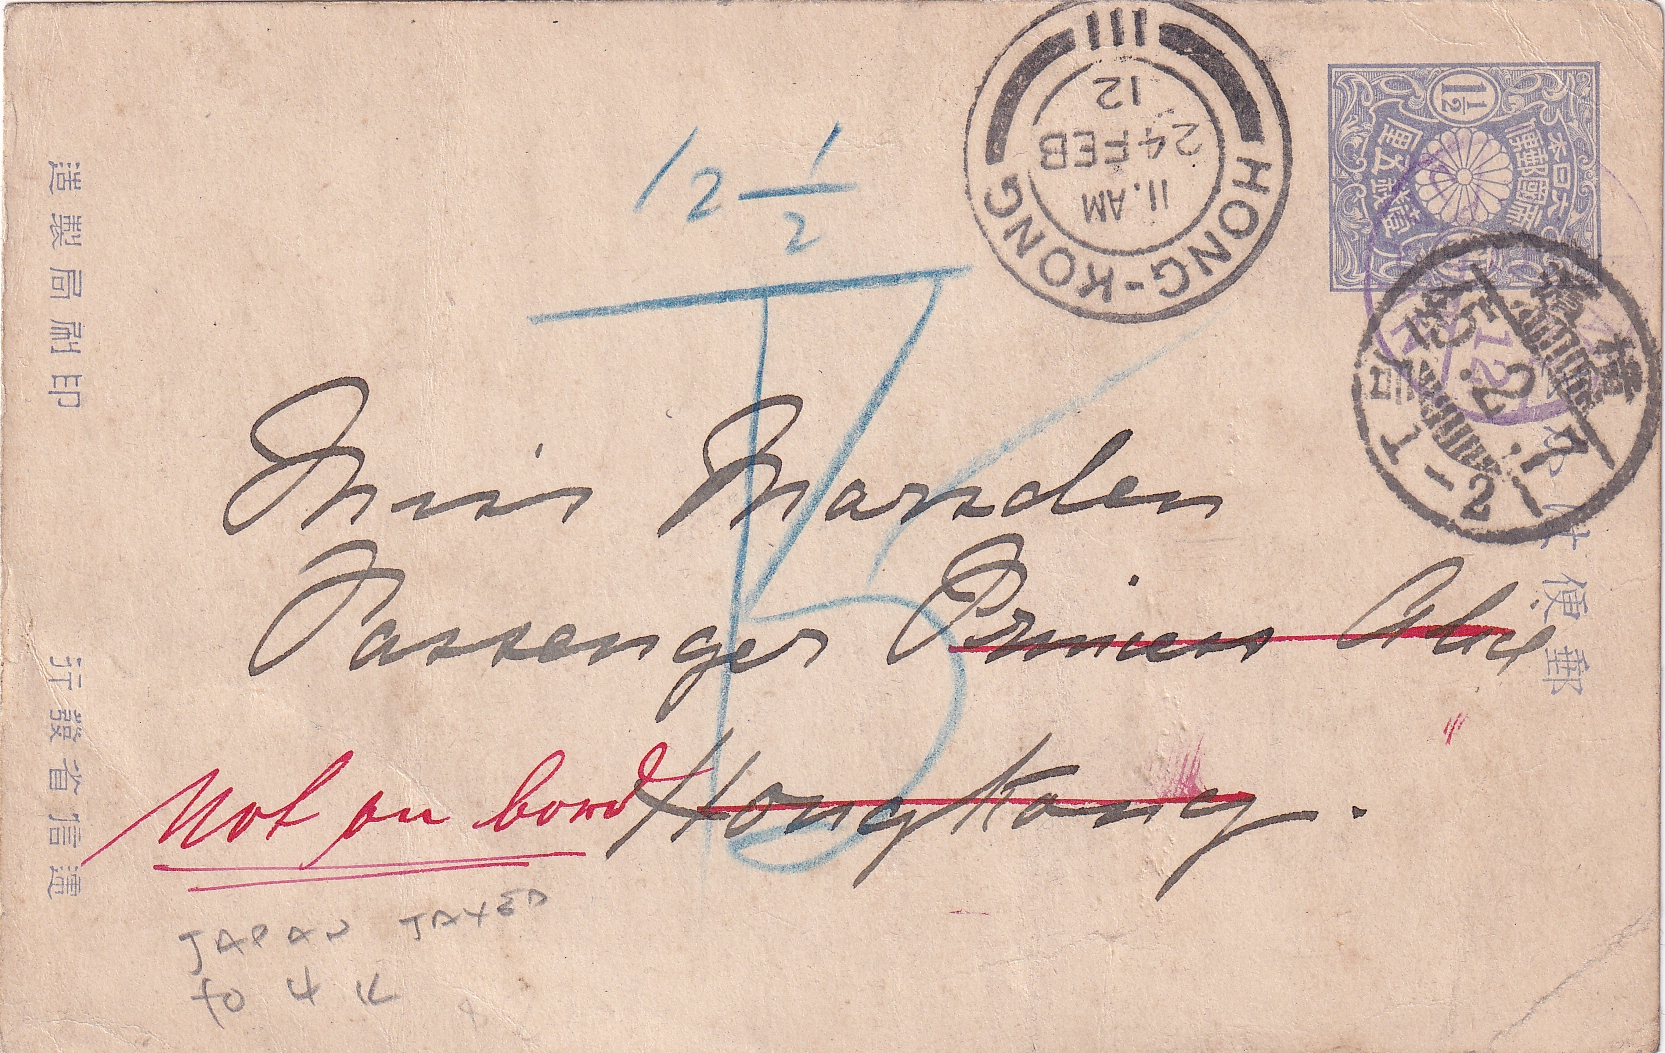 12 1/2
T
5
Miss Marsden
Passenger Princess Alice
Hong Kong.
Not on board
JAPAN TAXED
to 4 K
HONG-KONG
11. AM
24 FEB
12
III
大日本帝國郵便
壹錢五厘
1 1/2
橫濱
45.2.17
T-2
12
郵便はがき
印刷局製造
遞信省發行